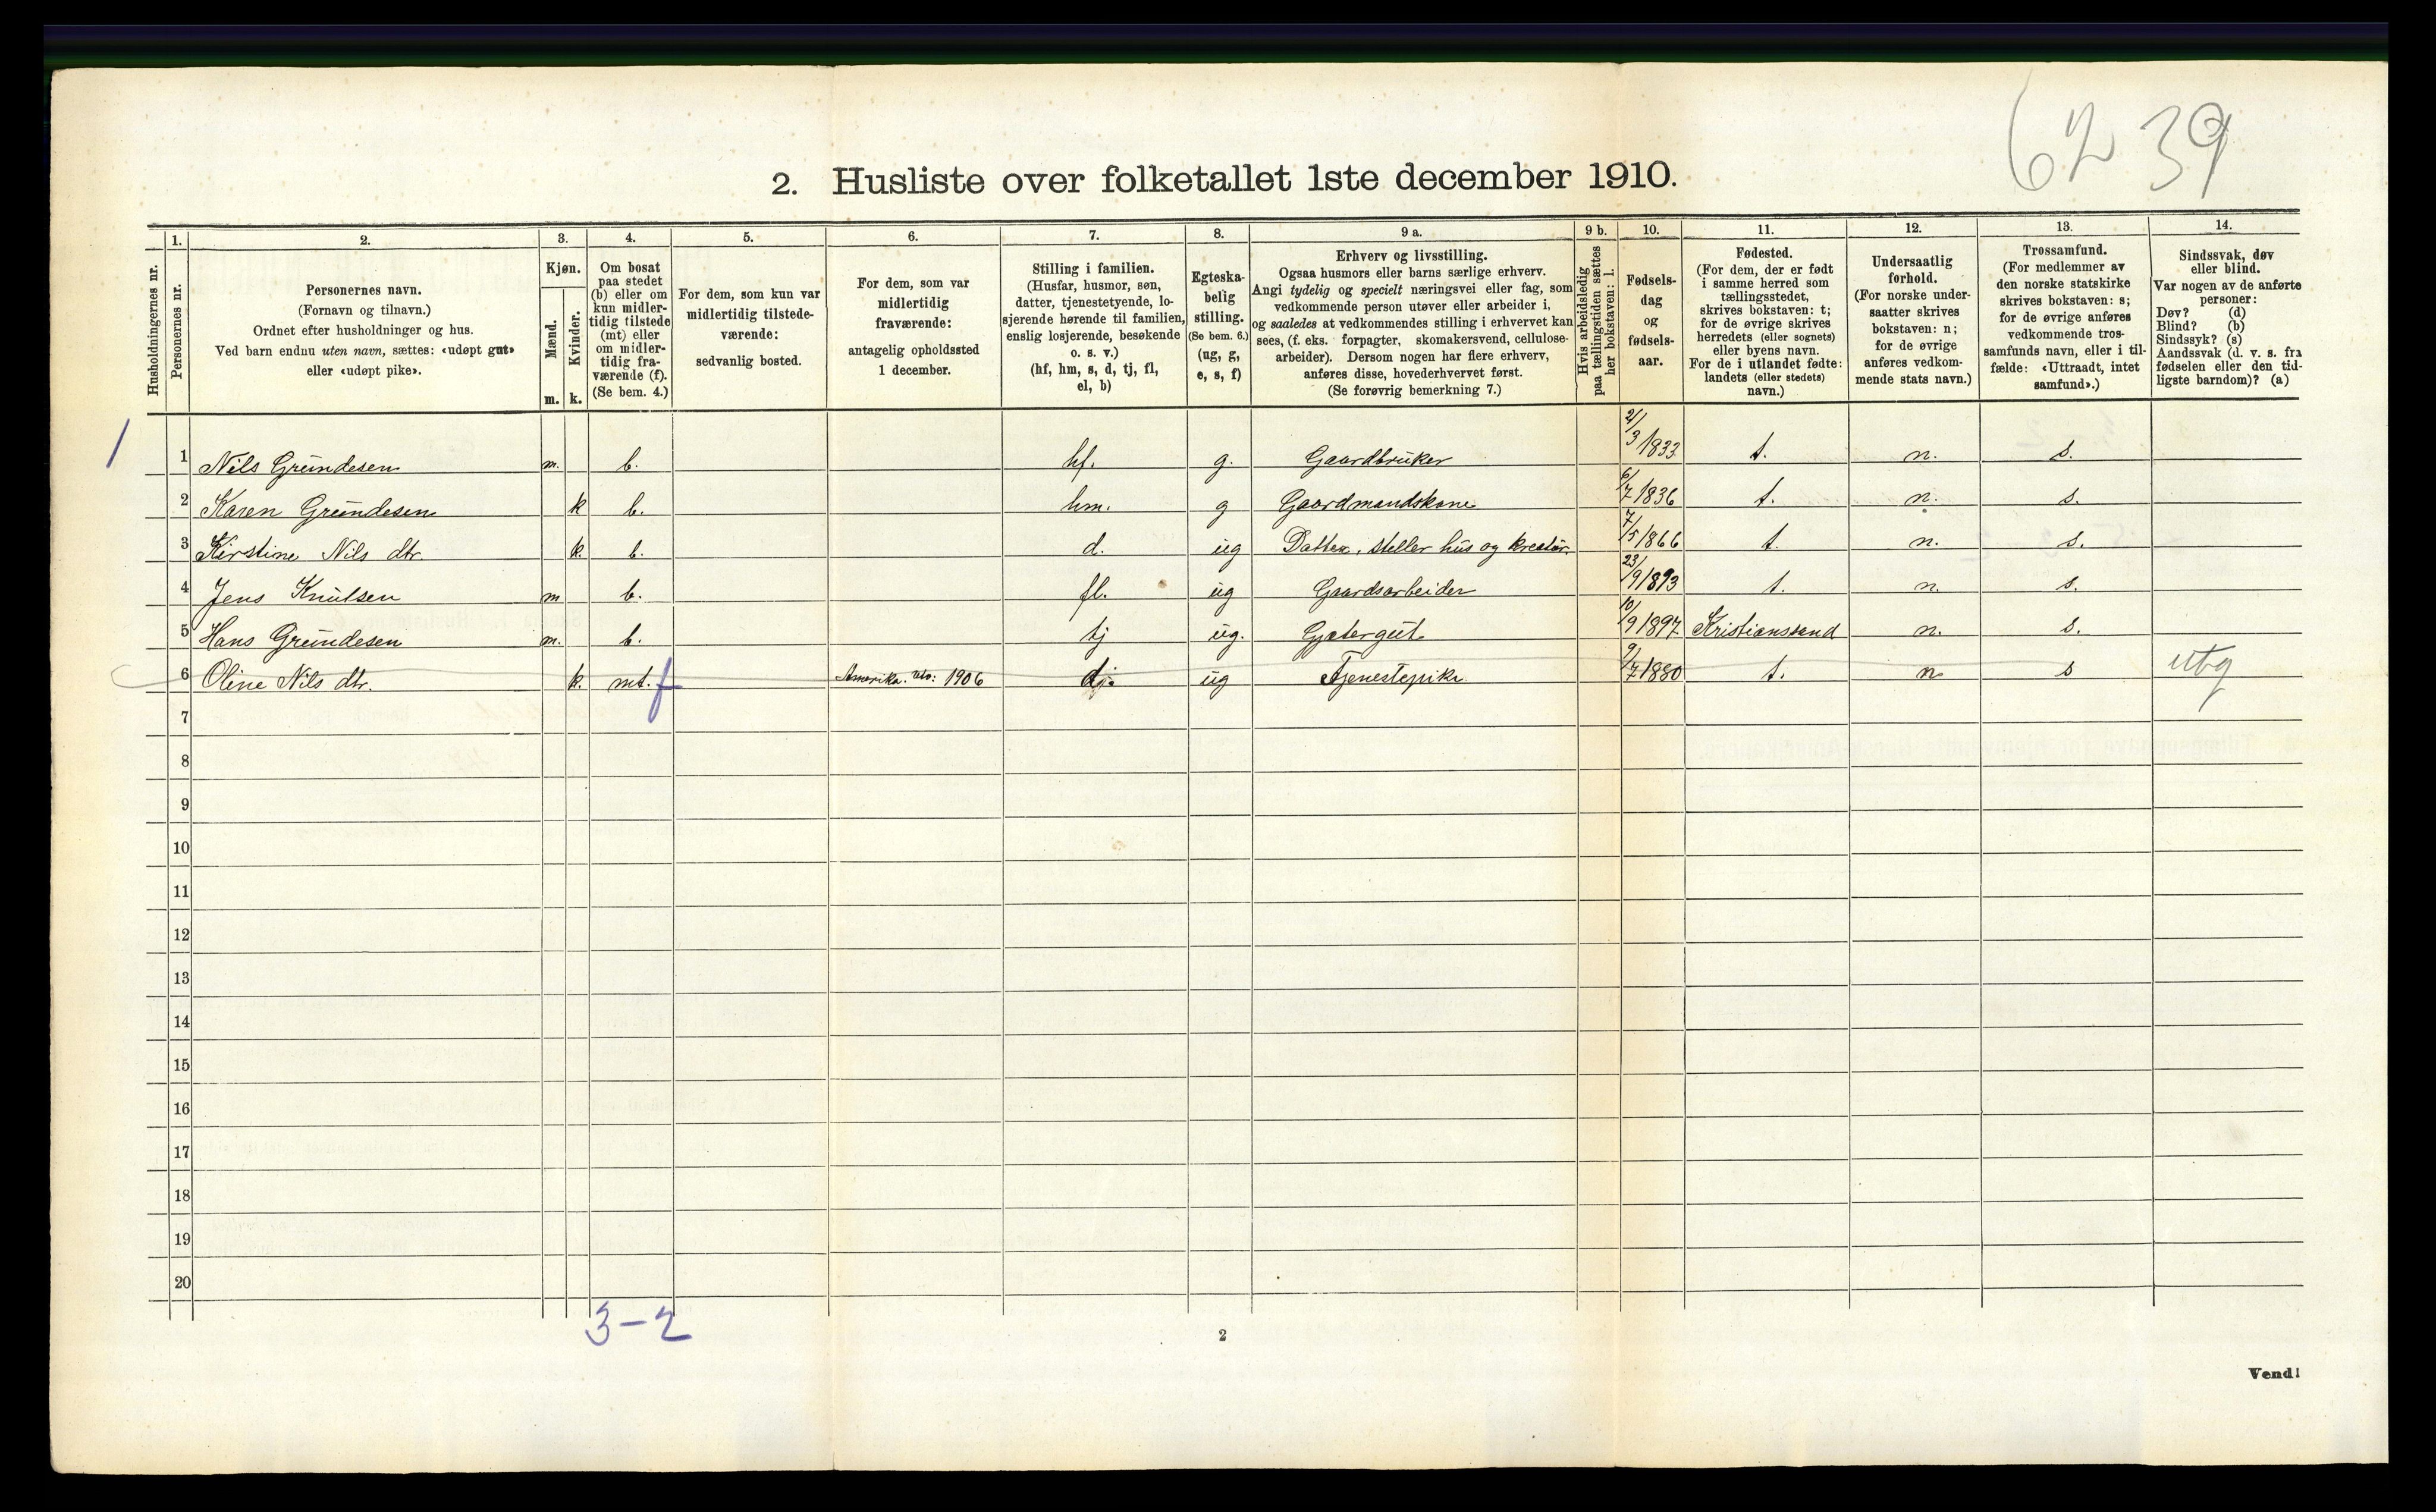 62 39
2. Husliste over folketallet 1ste december 1910.
Husholdningernes nr.
1. Personernes nr.
2. Personernes navn.
(Fornavn og tilnavn.)
Ordnet efter husholdninger og hus.
Ved barn endnu uten navn, sættes: «udøpt gut»
eller «udøpt pike».
3. Kjøn.
Mænd. Kvinder.
m. k.
4. Om bosat
paa stedet
(b) eller om
kun midler-
tidig tilstede
(mt) eller
om midler-
tidig fra-
værende (f).
(Se bem. 4.)
5. For dem, som kun var
midlertidig tilstede-
værende:
sedvanlig bosted.
6. For dem, som var
midlertidig
fraværende:
antagelig opholdssted
1 december.
7. Stilling i familien.
(Husfar, husmor, søn,
datter, tjenestetyende, lo-
sjerende hørende til familien,
enslig losjerende, besøkende
o. s. v.)
(hf, hm, s, d, tj, fl,
el, b)
8. Egteska-
belig
stilling.
(Se bem. 6.)
(ug, g,
e, s, f)
9 a. Erhverv og livsstilling.
Ogsaa husmors eller barns særlige erhverv.
Angi tydelig og specielt næringsvei eller fag, som
vedkommende person utøver eller arbeider i,
og saaledes at vedkommendes stilling i erhvervet kan
sees, (f. eks. forpagter, skomakersvend, cellulose-
arbeider). Dersom nogen har flere erhverv,
anføres disse, hovederhvervet først.
(Se forøvrig bemerkning 7.)
9 b. Hvis arbeidsledig
paa tællingstiden sættes
her bokstaven: l.
10. Fødsels-
dag
og
fødsels-
aar.
11. Fødested.
(For dem, der er født
i samme herred som
tællingsstedet,
skrives bokstaven: t;
for de øvrige skrives
herredets (eller sognets)
eller byens navn.
For de i utlandet fødte:
landets (eller stedets)
navn.)
12. Undersaatlig
forhold.
(For norske under-
saatter skrives
bokstaven: n;
for de øvrige
anføres vedkom-
mende stats navn.)
13. Trossamfund.
(For medlemmer av
den norske statskirke
skrives bokstaven: s;
for de øvrige anføres
vedkommende tros-
samfunds navn, eller i til-
fælde: «Uttraadt, intet
samfund».)
14. Sindssvak, døv
eller blind.
Var nogen av de anførte
personer:
Døv? (d)
Blind? (b)
Sindssyk? (s)
Aandssvak (d. v. s. fra
fødselen eller den tid-
ligste barndom)? (a)
1 1 Nils Grundesen m. b. hf. g. Gaardbruker 2/3 1833 t. n. s.
2 Karen Grundesen k b. hm. g Gaardmandskone 6/7 1836 t. n. s.
3 Kirstine Nils dtr. k. b. d. ug Datter, steller hus og kreatur. 7/5 1866 t. n. s.
4 Jens Knutsen m b. fl. ug Gaardsarbeider 23/9 1893 t. n. s.
5 Hans Grundesen m. b. tj ug. Gjætergut 10/9 1897 Kristianssand n. s.
6 Oline Nils dtr. k. mt. f Amerika. Utv: 1906 ug Tjenestepike 9/7 1880 t. n s utg
7
8
9
10
11
12
13
14
15
16
17
18
19
20
3-2
2
Vend!